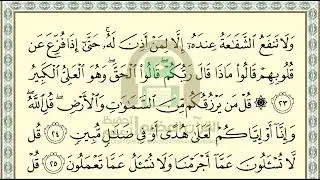 وَلَا تَنفَعُ ٱلشَّفَٰعَةُ عِندَهُۥٓ إِلَّا لِمَنْ أَذِنَ لَهُۥ ۚ حَتَّىٰٓ إِذَا فُزِّعَ عَن
قُلُوبِهِمْ قَالُوا۟ مَاذَا قَالَ رَبُّكُمْ ۖ قَالُوا۟ ٱلْحَقَّ ۖ وَهُوَ ٱلْعَلِىُّ ٱلْكَبِيرُ
۝٢٣ ۞ قُلْ مَن يَرْزُقُكُم مِّنَ ٱلسَّمَٰوَٰتِ وَٱلْأَرْضِ ۖ قُلِ ٱللَّهُ ۖ
وَإِنَّآ أَوْ إِيَّاكُمْ لَعَلَىٰ هُدًى أَوْ فِى ضَلَٰلٍ مُّبِينٍ ۝٢٤ قُل
لَّا تُسْـَٔلُونَ عَمَّآ أَجْرَمْنَا وَلَا نُسْـَٔلُ عَمَّا تَعْمَلُونَ ۝٢٥ قُلْ